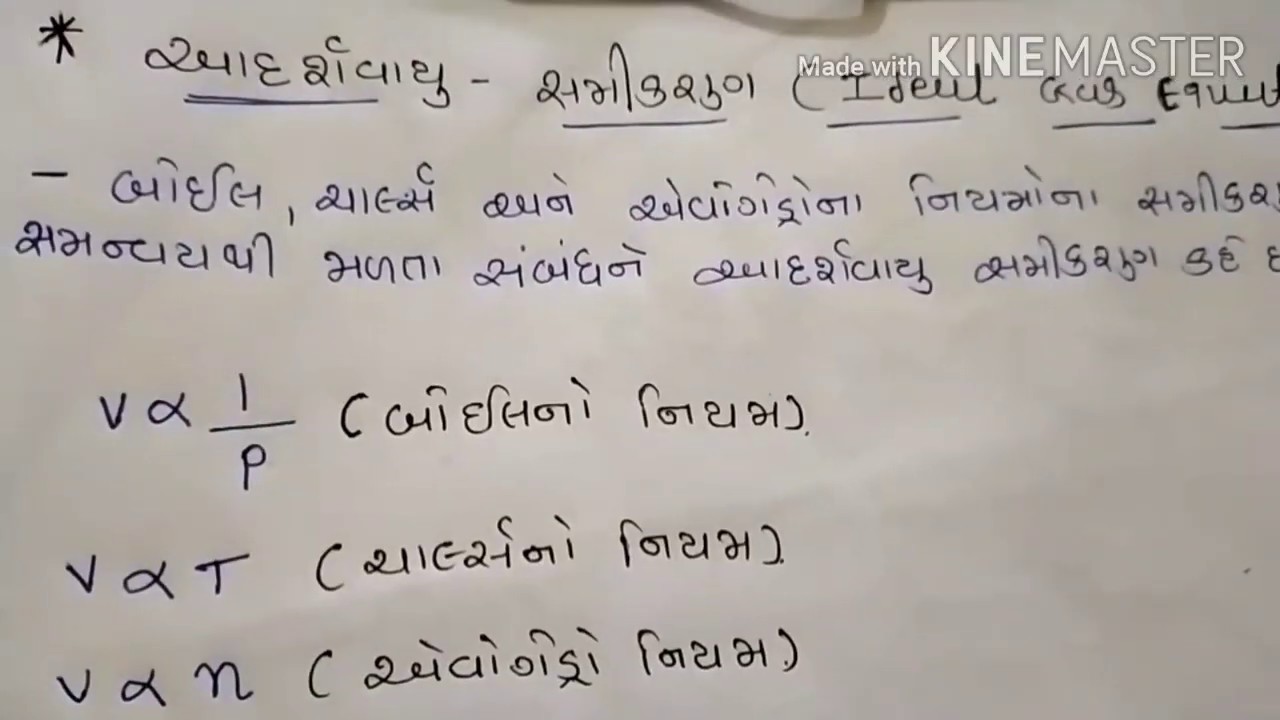 Made with KINEMASTER
* આદર્શવાયુ - સમીકરણ (Ideal Gas Equat
- બોઈલ, ચાર્લ્સ અને એવોગેડ્રોના નિયમોના સમીકર
સમન્વયથી મળતા સંબંધને આદર્શવાયુ સમીકરણ કહે છ
V ∝ 1/P (બોઈલનો નિયમ).
V ∝ T (ચાર્લ્સનો નિયમ).
V ∝ n (એવોગેડ્રો નિયમ)